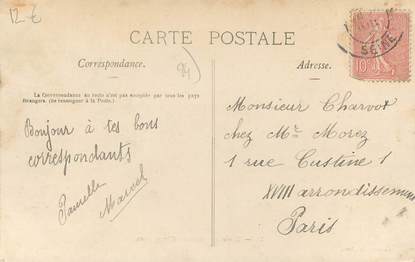 12 €
CARTE POSTALE
Correspondance.
94
Adresse.
SEINE
10
La Correspondance au recto n'est pas acceptée par tous les pays
Etrangers. (Se renseigner à la Poste.)
Bonjour à tes bons
correspondants
Marcel
Monsieur Charvot
chez Mr Morez
1 rue Custine 1
XVIII arrondissement
Paris